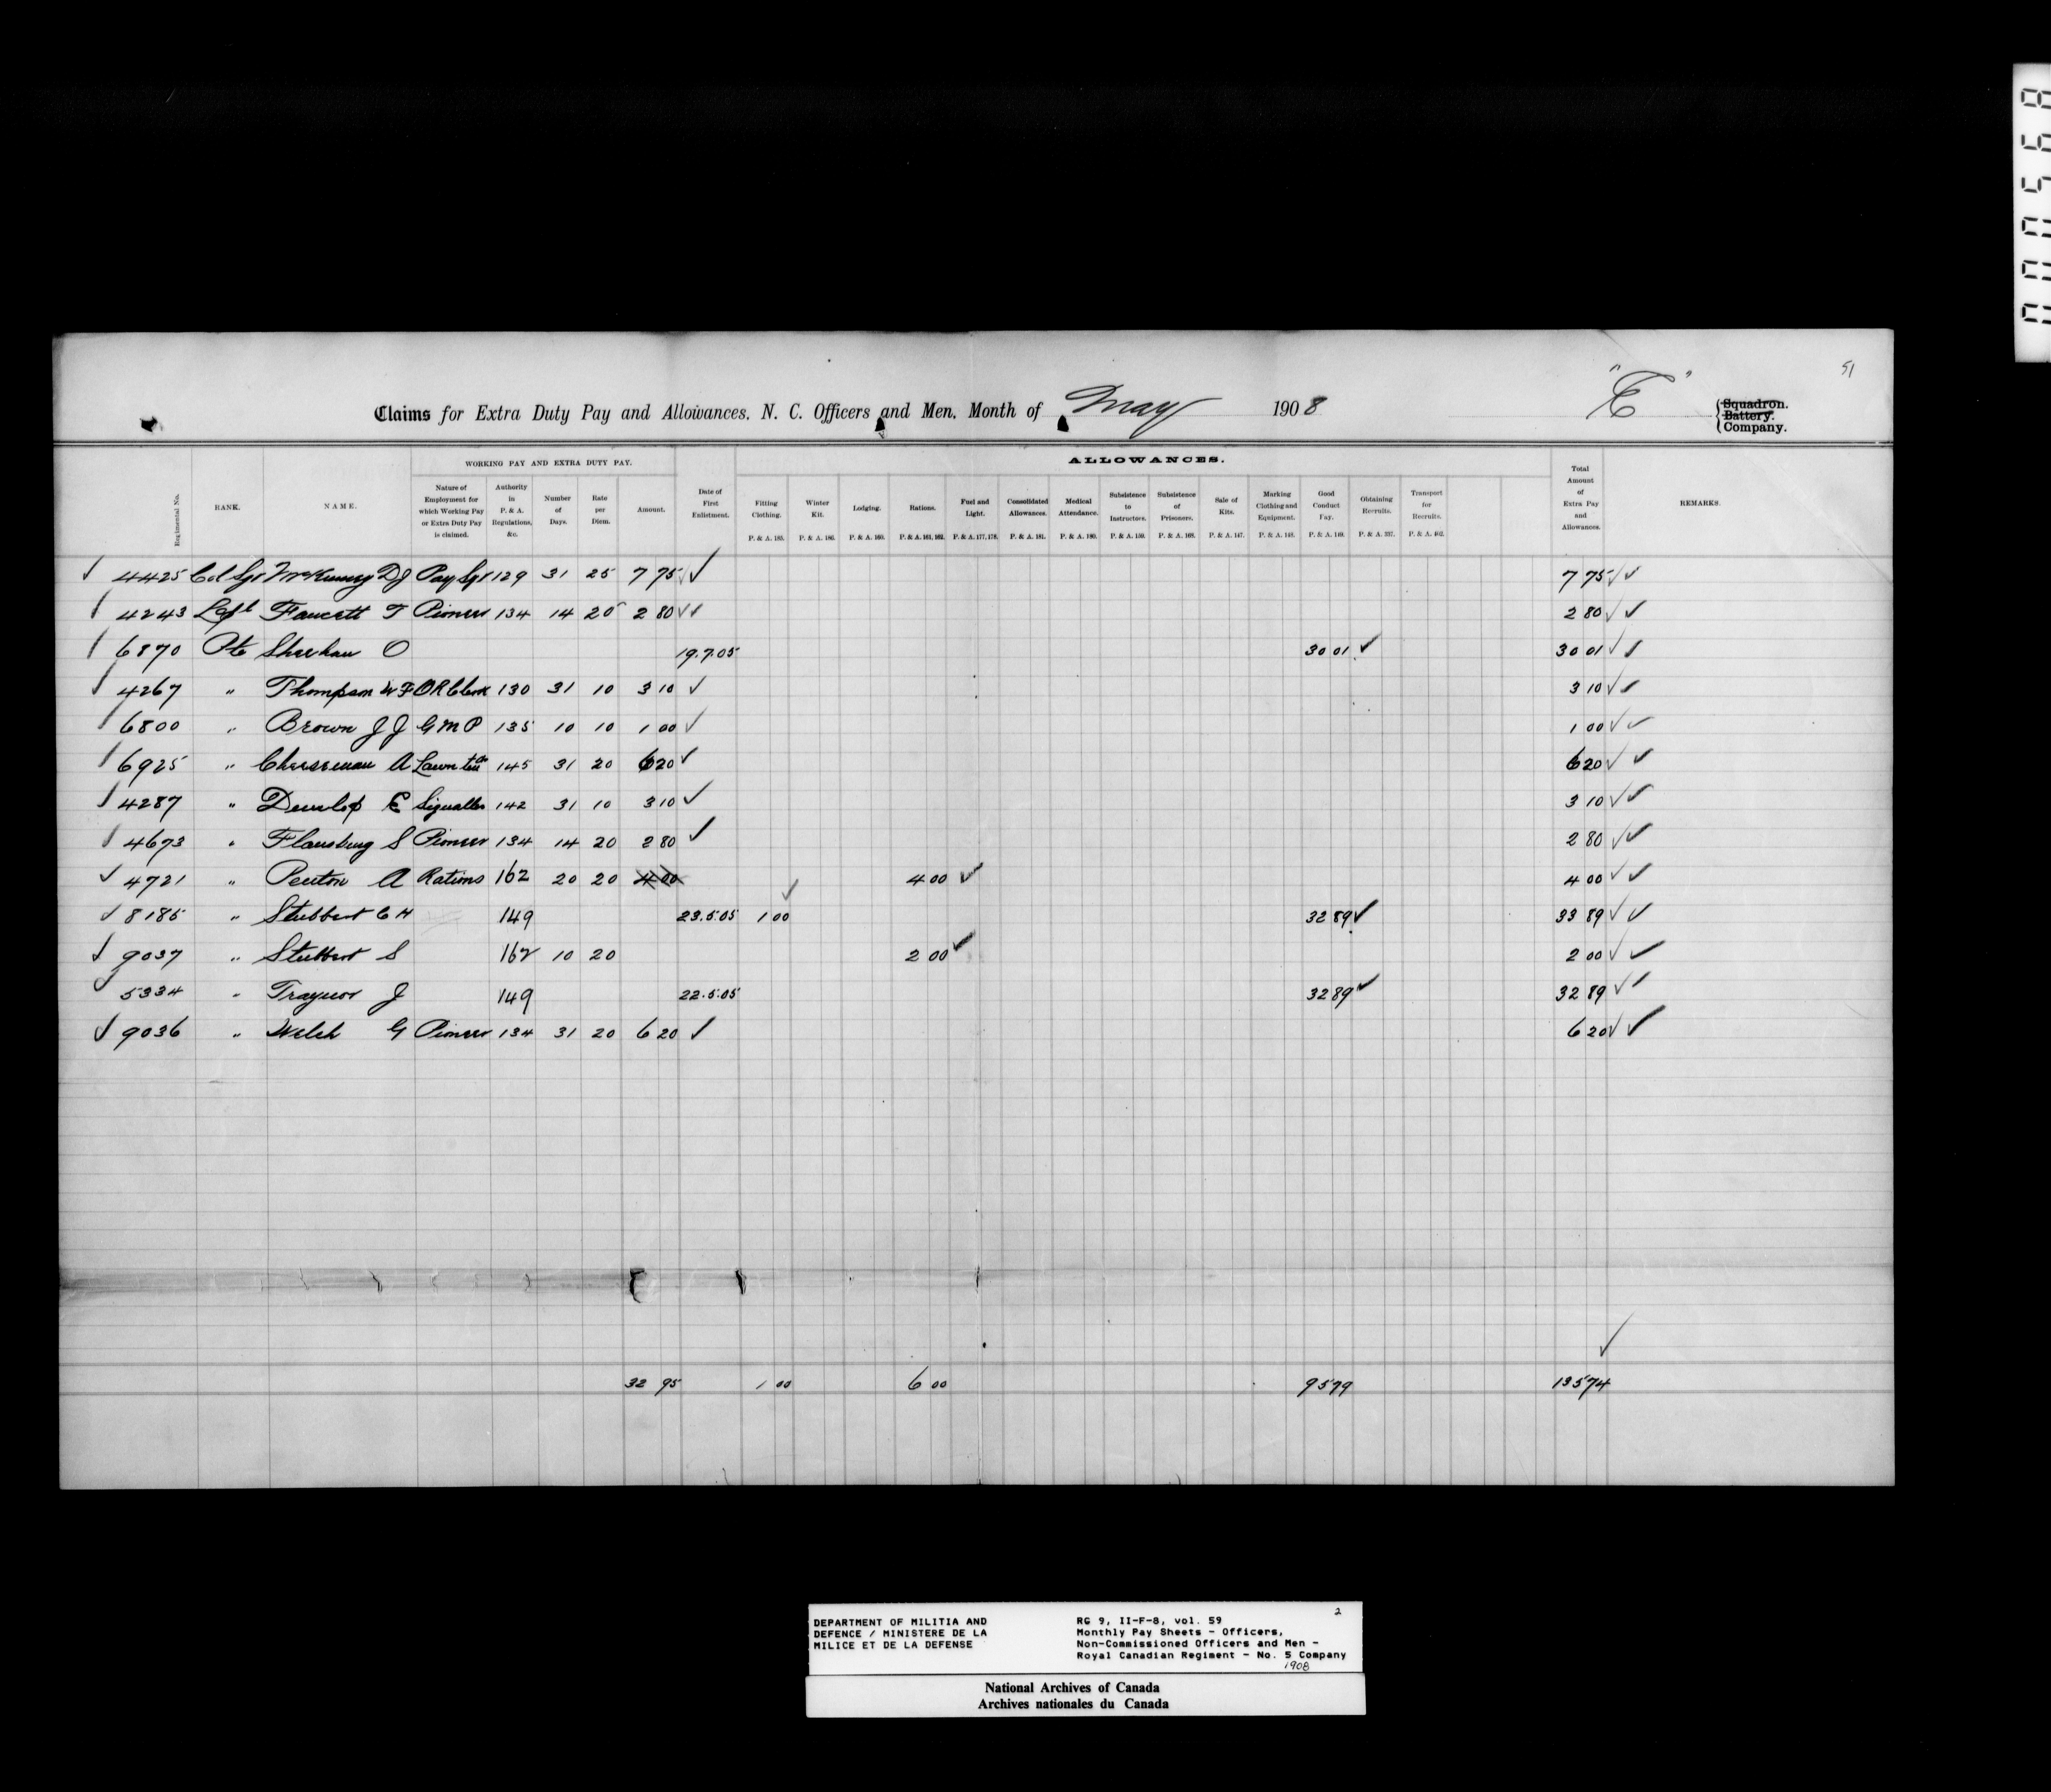 51
Claims for Extra Duty Pay and Allowances. N. C. Officers and Men. Month of May 1908 "E" Squadron. Battery. Company.
Regimental No. RANK. NAME. WORKING PAY AND EXTRA DUTY PAY. Date of First Enlistment. ALLOWANCES. Total Amount of Extra Pay and Allowances. REMARKS.
Nature of Employment for which Working Pay or Extra Duty Pay is claimed. Authority in P. & A. Regulations, &c. Number of Days. Rate per Diem. Amount. Fitting Clothing. Winter Kit. Lodging. Rations. Fuel and Light. Consolidated Allowances. Medical Attendance. Subsistence to Instructors. Subsistence of Prisoners. Sale of Kits. Marking Clothing and Equipment. Good Conduct Pay. Obtaining Recruits. Transport for Recruits.
P. & A. 185. P. & A. 186. P. & A. 160. P. & A. 161, 162. P. & A. 177, 178. P. & A. 181. P. & A. 180. P. & A. 159. P. & A. 168. P. & A. 147. P. & A. 148. P. & A. 149. P. & A. 337. P. & A. 402.
4425 Col Sgt McKinney DJ Pay Sgt 129 31 25 7 75 7 75
4243 Faucett T Pioneer 134 14 20 2 80 2 80
6870 Pte Sheehan O 19.7.05 30 01 30 01
4267 " Thompson W F OR Clerk 130 31 10 3 10 3 10
6800 " Brown J J G M P 135 10 10 1 00 1 00
6925 " Cheeseman A Lawn 145 31 20 6 20 6 20
4287 " Dunlop E Signaller 142 31 10 3 10 3 10
4673 " Flansburg S Pioneer 134 14 20 2 80 2 80
4721 " Penton A Rations 162 20 20 4 00 4 00 4 00
8185 " Stubbert C H 149 23.5.05 1 00 32 89 33 89
9037 " Stubbert S 162 10 20 2 00 2 00
5334 " Traynor J 149 22.5.05 32 89 32 89
9036 " Welch G Pioneer 134 31 20 6 20 6 20
32 95 1 00 6 00 95 79 135 74
DEPARTMENT OF MILITIA AND
DEFENCE / MINISTERE DE LA
MILICE ET DE LA DEFENSE
2
RG 9, II-F-8, vol. 59
Monthly Pay Sheets - Officers,
Non-Commissioned Officers and Men -
Royal Canadian Regiment - No. 5 Company
1908
National Archives of Canada
Archives nationales du Canada